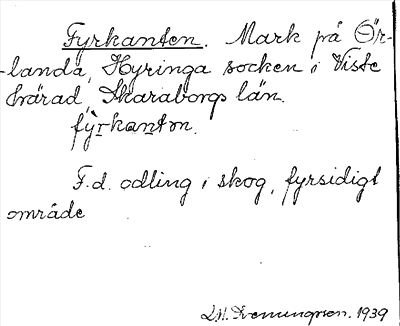 Fyrkanten. Mark på Ör-
-landa, Hyringa socken i Viste
härad, Skaraborgs län.
fỳrkantən.
F.d. odling i skog, fyrsidigt
område
1939